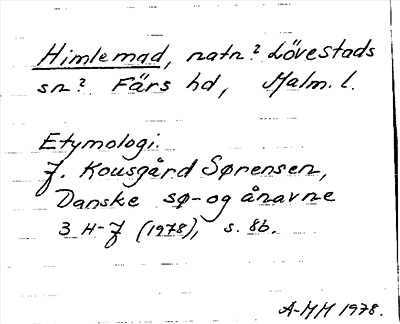 Himlemad, natn? Lövestads
sn? Färs hd, Malm. l.
Etymologi:
J. Kousgård Sørensen,
Danske sø- og ånavne
3 H-J (1978), s. 86.
A-MH 1978.